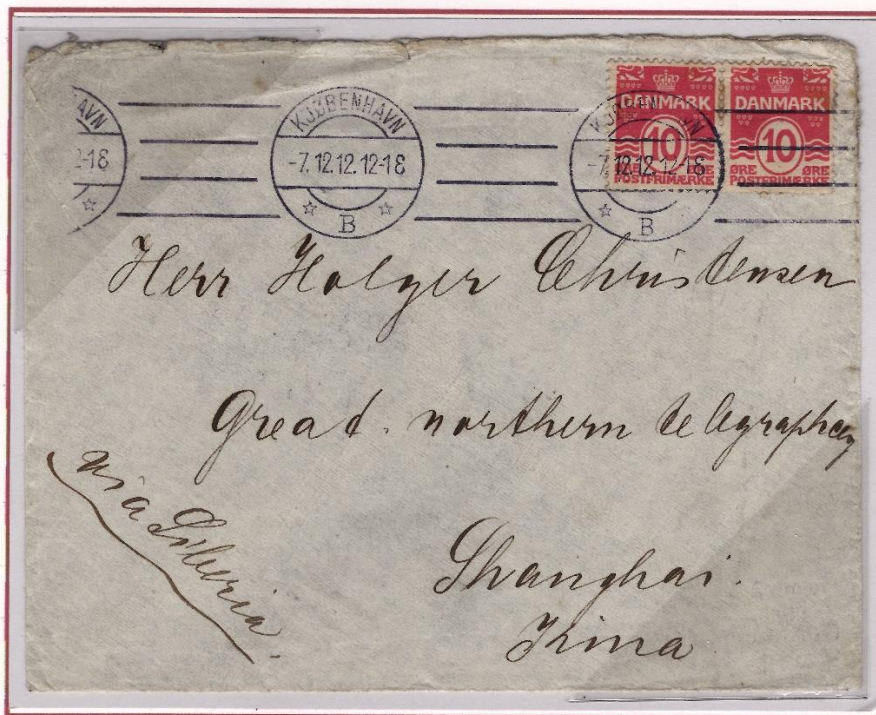 AVN
2-18
KJØBENHAVN
-7.12.12.12-18
B
KJØB
VN
-7.12.12.12-18
B
DANMARK
10
ØRE ØRE
POSTFRIMÆRKE
DANMARK
10
ØRE ØRE
POSTFRIMÆRKE
Herr Holger Christensen
Great. northern telegraphcy
via Siberia.
Shanghai.
Kina